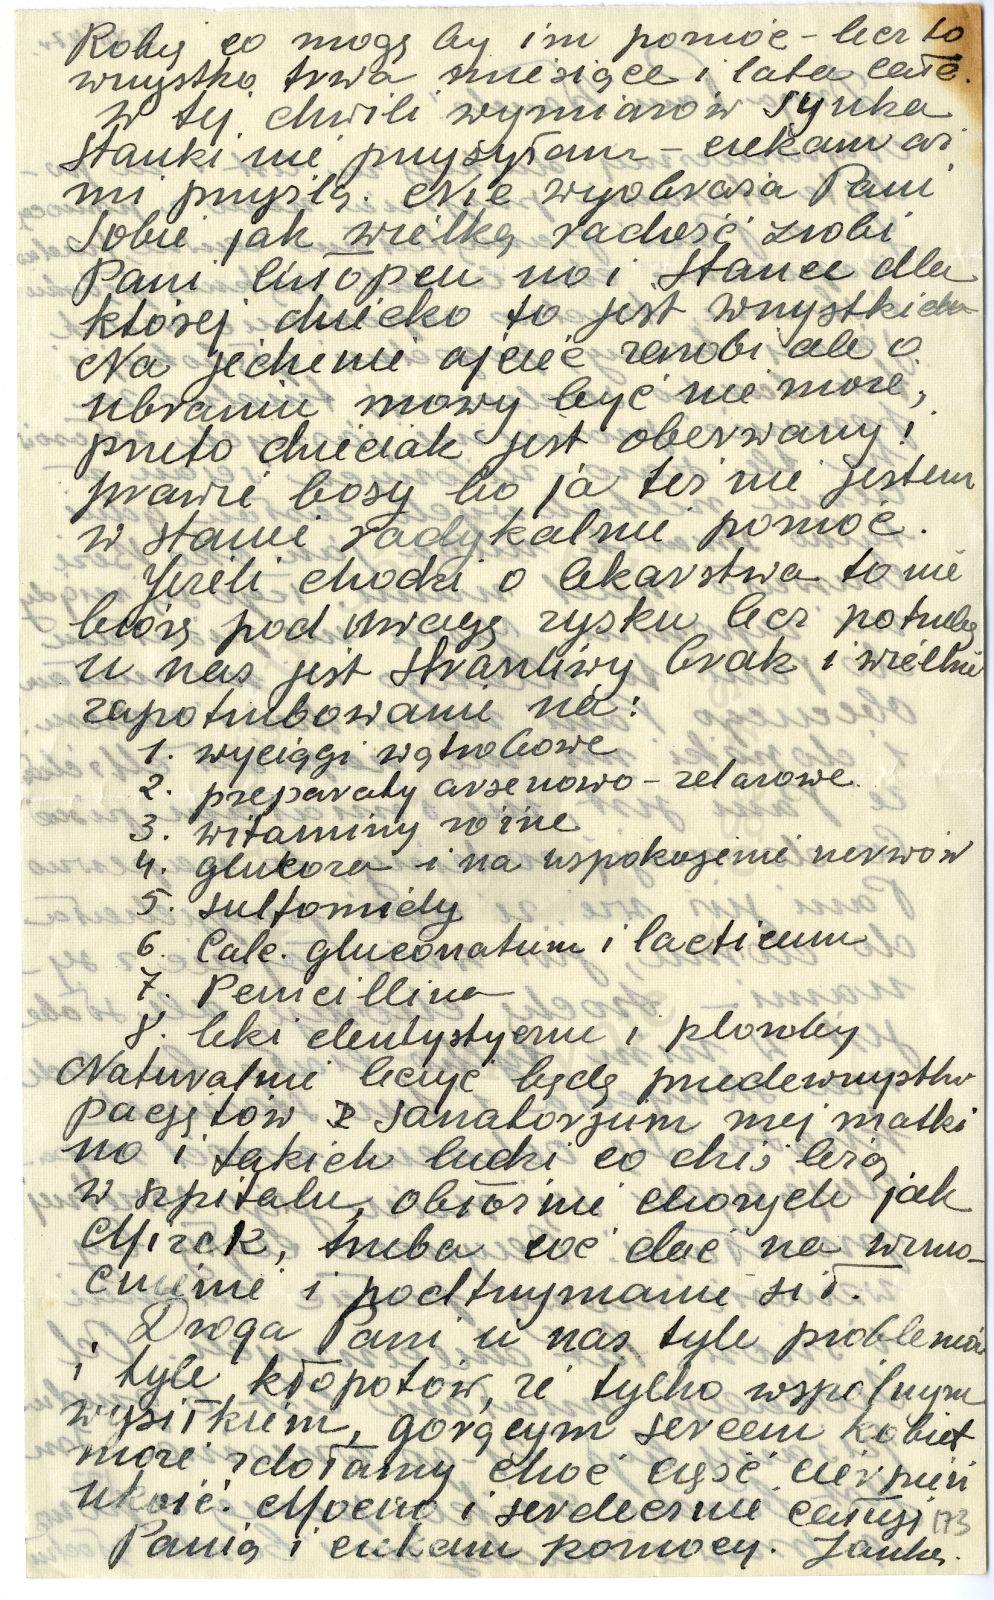 Robię co mogę by im pomóc – lecz to
wszystko trwa miesiące i lata całe.
W tej chwili wymiarów Synka
Stanki nie przysyłam – czekam aż
mi przyślą. Nie wyobraża Pani
sobie jak wielką radość zrobi
Pani chłopcu no i Stance dla
której dziecko to jest wszystkim
Na jedzenie ojciec zarobi ale o
ubraniu mowy być nie może,
przeto dzieciak jest oberwany i
prawie bosy bo ja też nie jestem
w stanie radykalnie pomóc.
Jeżeli chodzi o lekarstwa to nie
biorę pod uwagę zysku lecz potrzebę
u nas jest straszliwy brak i wielkie
zapotrzebowanie na:
1. wyciągi wątrobowe
2. preparaty arsenowo – żelazowe
3. witaminy różne
4. glukoza i na uspokojenie nerwów
5. sulfomidy
6. Calc. gluconatum i lacticum
7. Penicillina
8. leki dentystyczne i plomby
Naturalnie leczyć będę przedewszystkim
pacjętów z Sanatorjum mej matki
no i takich ludzi co dziś leżą
w szpitalu, obłożnie chorych jak
Mirek, trzeba coś dać na wzmo-
cnienie i podtrzymanie sił.
Droga Pani u nas tyle problemów
i tyle kłopotów, że tylko wspólnym
wysiłkiem, gorącym sercem kobiet
może zdołamy choć część cierpień
ukoić. Mocno i serdecznie całuję
Panią i czekam pomocy. Janka.
173